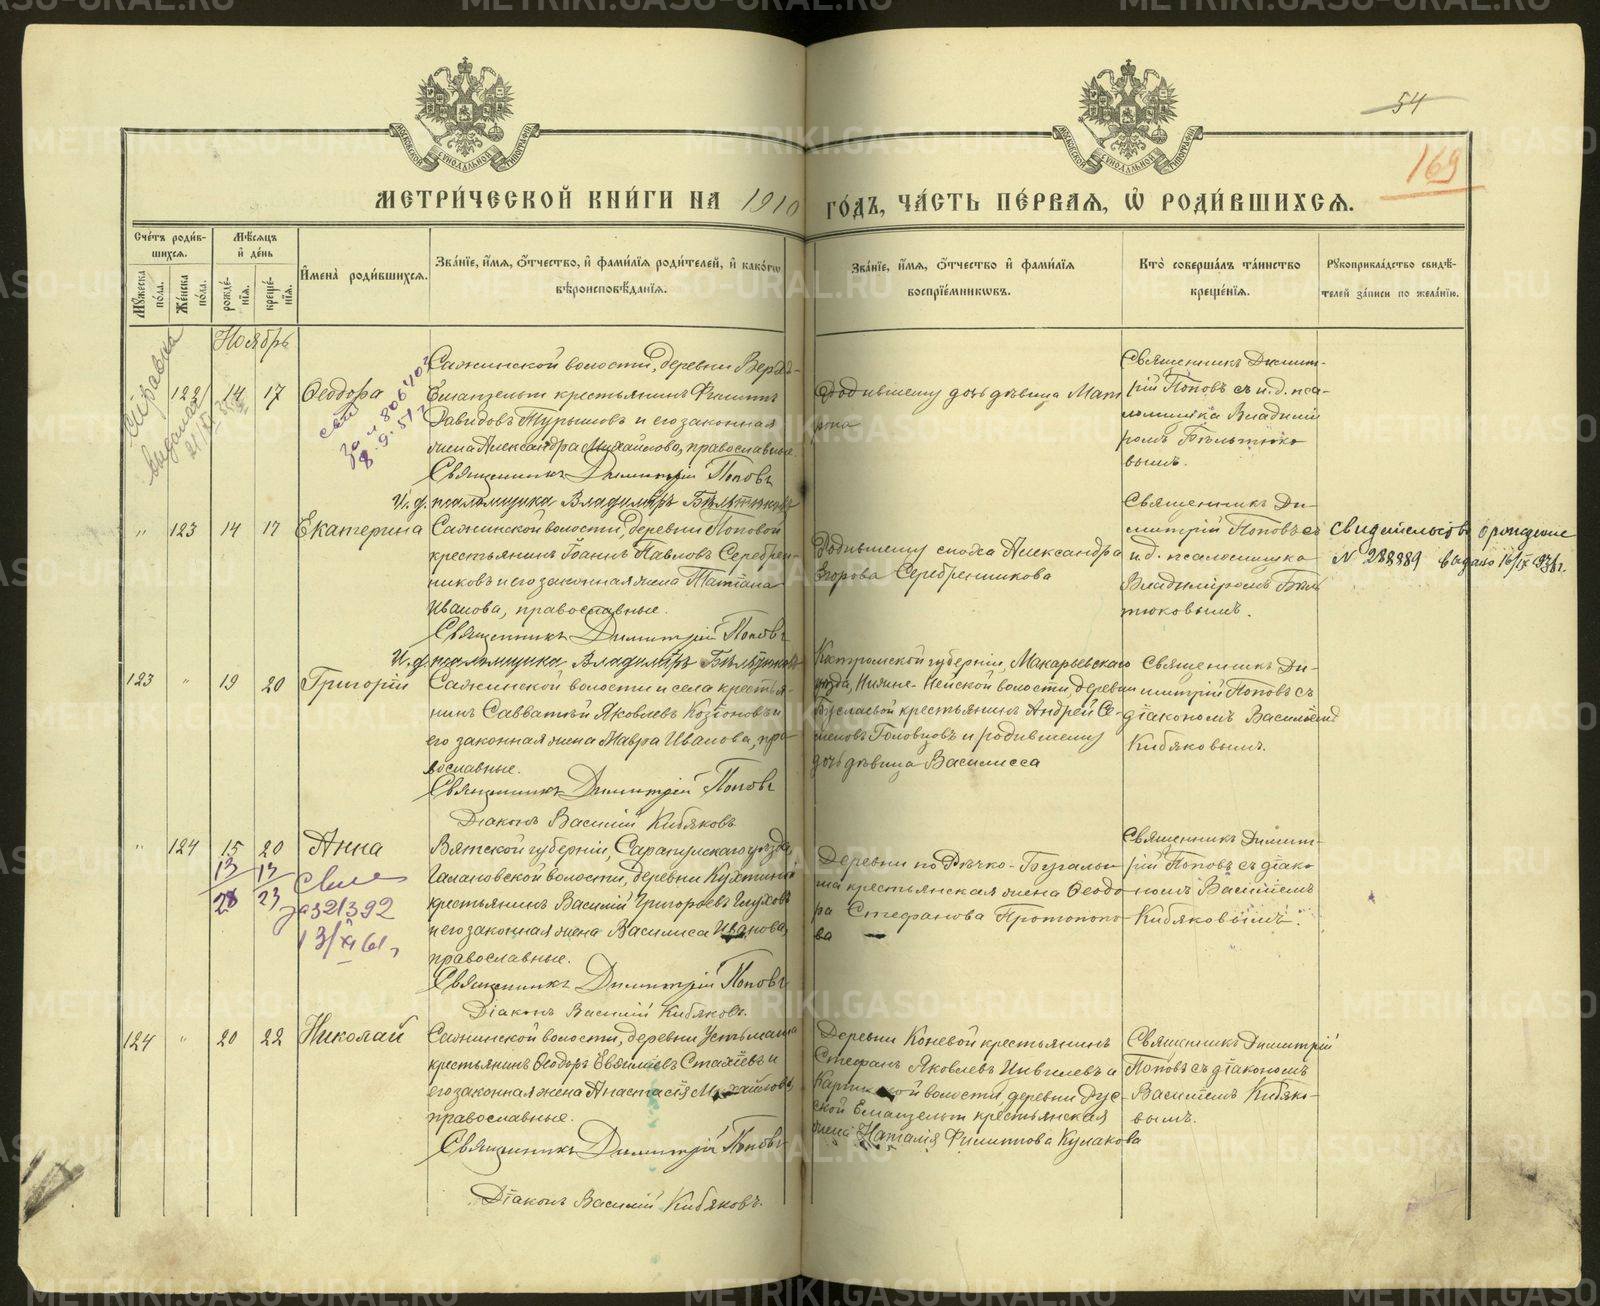 54
169
МЕТРИ́ЧЕСКОЙ КНИ́ГИ НА 1910 ГО́ДЪ, ЧА́СТЬ ПЕ́РВАЯ, Ѡ҆ РОДИ́ВШИХСЯ.
Сче́тъ роди́в-
шихся.
Мꙋ́жеска по́ла.
Же́нска по́ла.
Мѣ́сѧцъ и҆ де́нь
рожде́-нїѧ.
креще́-нїѧ.
И҆мена̀ роди́вшихся.
Зва́нїе, и҆́мѧ, ѻ҆́тчество, и҆ фами́лїѧ роди́телей, и҆ како́гѡ
вѣроисповѣ́данїѧ.
Зва́нїе, и҆́мѧ, ѻ҆́тчество и҆ фами́лїѧ
воспрїе́мникѡвъ.
Кто̀ соверша́лъ та́инство
креще́нїѧ.
Рꙋкоприкла́дство свидѣ́-
телей за́писи по жела́нїю.
Ноябрь
Справка
выдана
122 14 17 Ѳеодора
8.9.51г
Сажинской волости, деревни Верхъ-
Емангельш крестьянинъ Филиппъ
Давидовъ Турышовъ и его законная
жена Александра Михайлова, православные
Священникъ Димитрій Поповъ
И. д. псаломщика Владиміръ Бѣльтюковъ
Родившему дочь дѣвица Мат
рона
Священникъ Димит-
рій Поповъ съ и. д. пса-
ломщика Владимі
ромъ Бѣльтюко
вымъ.
" 123 14 17 Екатерина
Сажинской волости, деревни Поповой
крестьянинъ Іоаннъ Павловъ Серебрен-
никовъ и его законная жена Татіана
Иванова, православные.
Священникъ Димитрій Поповъ
И. д. псаломщика Владиміръ Бѣльтюковъ
Родившему сноха Александра
Егорова Серебренникова
Священникъ Ди-
митрій Поповъ съ
и. д. псаломщика
Владиміромъ Бѣль
тюковымъ.
Свидетельство о рождение
N 288889 выдано 16/IX
123 " 19 20 Григорій
Сажинской волости и села крестья-
нинъ Савватій Яковлевъ Козіоновъ и
его законная жена Мавра Иванова, пра
вославные.
Священникъ Димитрій Поповъ
Діаконъ Василій Кибяковъ
Костромской губерніи, Макарьевскаго
уѣзда, Нижне-Нейской волости, деревни
крестьянинъ Андрей Се-
меновъ Головцовъ и родившему
дочь дѣвица Василисса
Священникъ Ди-
митрій Поповъ съ
діакономъ Василіемъ
Кибяковымъ.
" 124 15 20 Анна
13 13
28 23
за 321392
13/XI 61г
Вятской губерніи, Сарапулскаго уѣзда,
Галановской волости, деревни Кухтиной
крестьянинъ Василій Григорьевъ Глуховъ
и его законная жена Василиса Иванова,
православные.
Священникъ Димитрій Поповъ
Діаконъ Василій Кибяковъ.
Деревни по Рѣчко-
ша крестьянская жена Ѳеодо
ра Стефанова Протопопо
ва
Священникъ Димит-
рій Поповъ съ діако-
номъ Василіемъ
Кибяковымъ.
124 " 20 22 Николай
Сажинской волости, деревни Устьмаша
крестьянинъ Ѳеодоръ Евѳиміевъ Стахѣевъ и
его законная жена Анастасія Михайлова
православные.
Священникъ Димитрій Поповъ
Діаконъ Василій Кибяковъ.
Деревни Коневой крестьянинъ
Стефанъ Яковлевъ и
волости, деревни Рус
ской Емангельш крестьянская
жена Наталія Филиппова Кулакова
Священникъ Димитрій
Поповъ съ діакономъ
Василіемъ Кибяко-
вымъ.